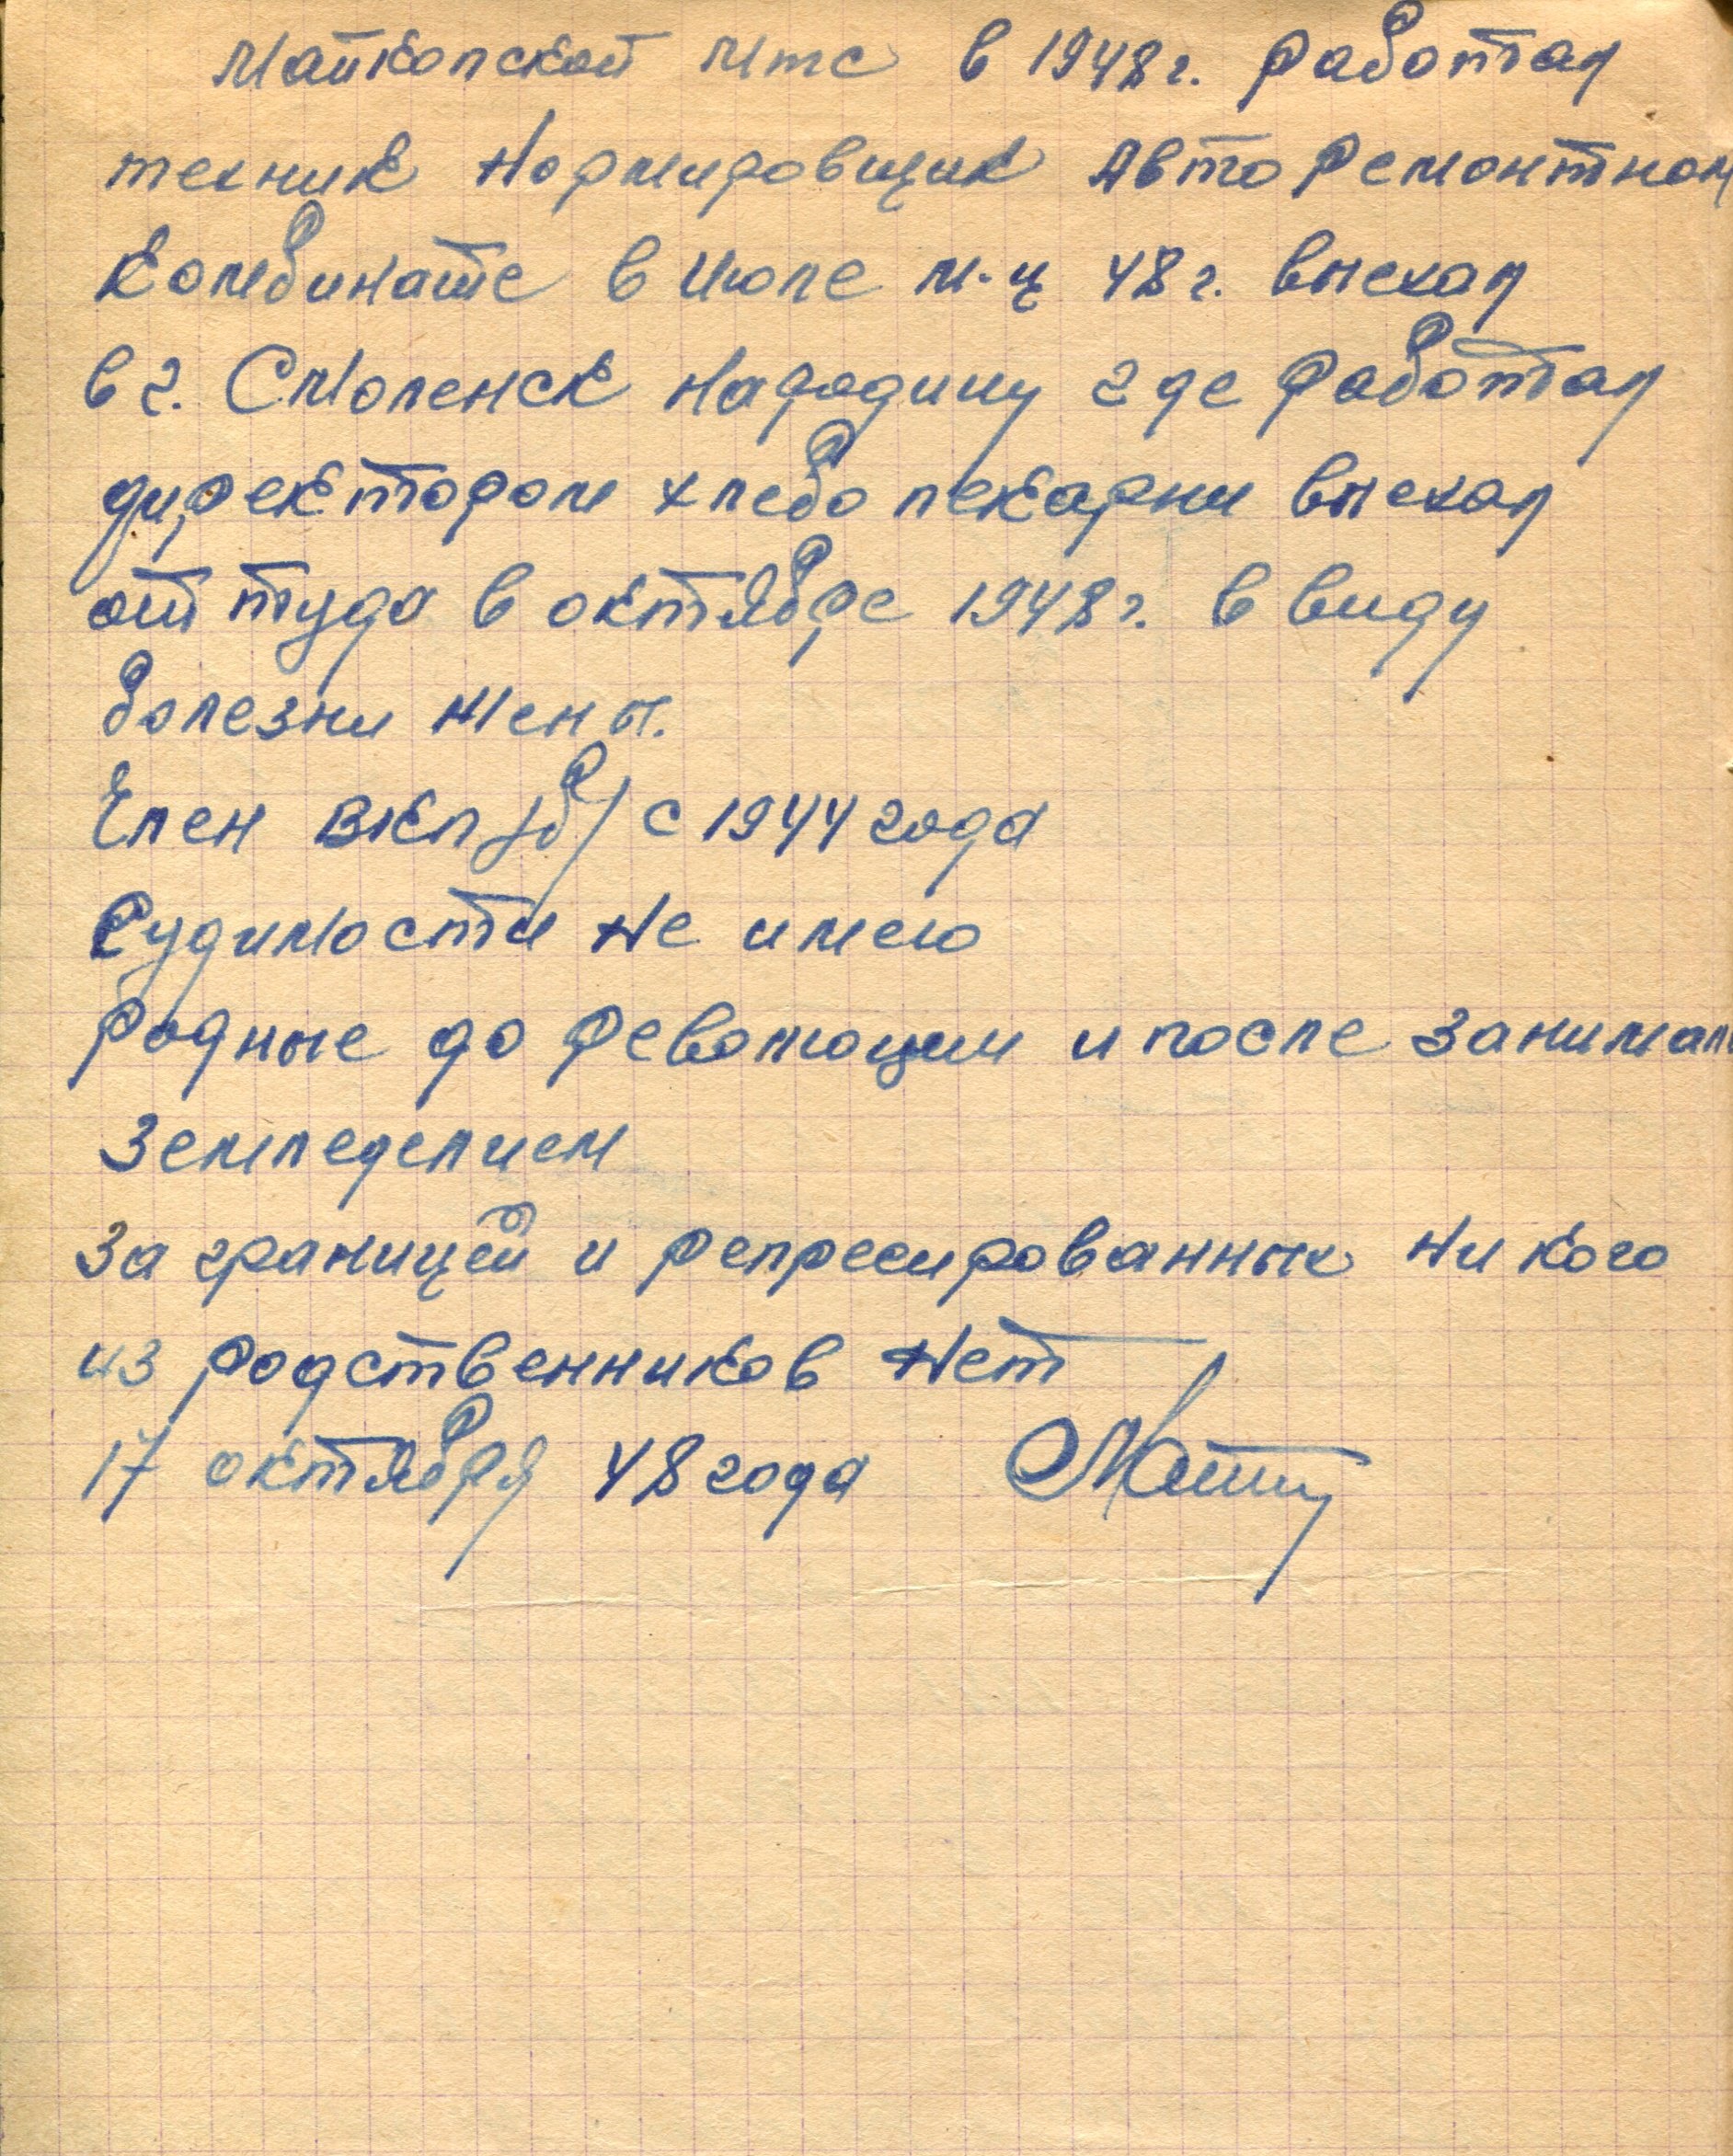 Майкопской мтс в 1948 г. работал
техник нормировщик Авто ремонтном
комбинате в Июле м-ц 48 г. выехал
в г. Смоленск народину где работал
директором хлебо пекарни выехал
от туда в октябре 1948 г. в виду
болезни жены.
Член ВКП /б/ с 1944 года
Судимости не имею
родные до революции и после занимал
земледелием
За границей и репресированных ни кого
из родственников нет
17 октября 48 года